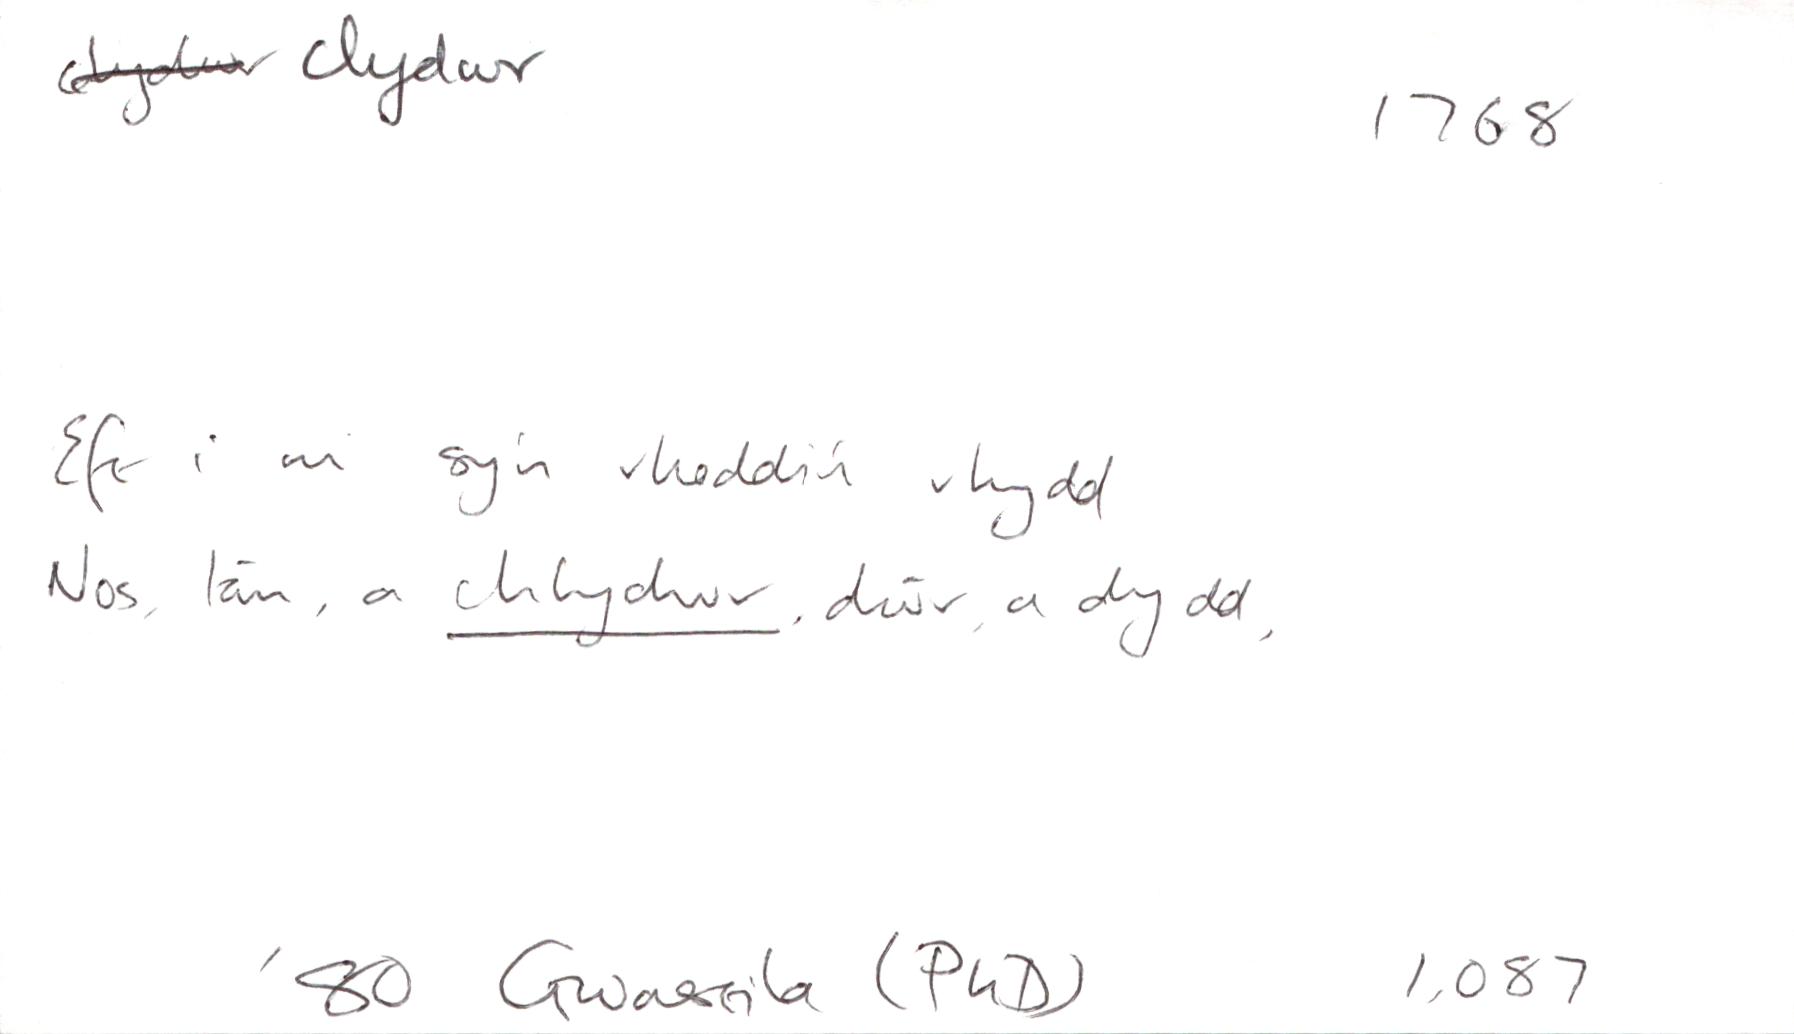 clydwr clydwr
1768
Efe i mi sy'n rhoddi'n rhydd
Nos, tân, a chlydwr, dŵr, a dydd,
'80 (PhD) 1,087